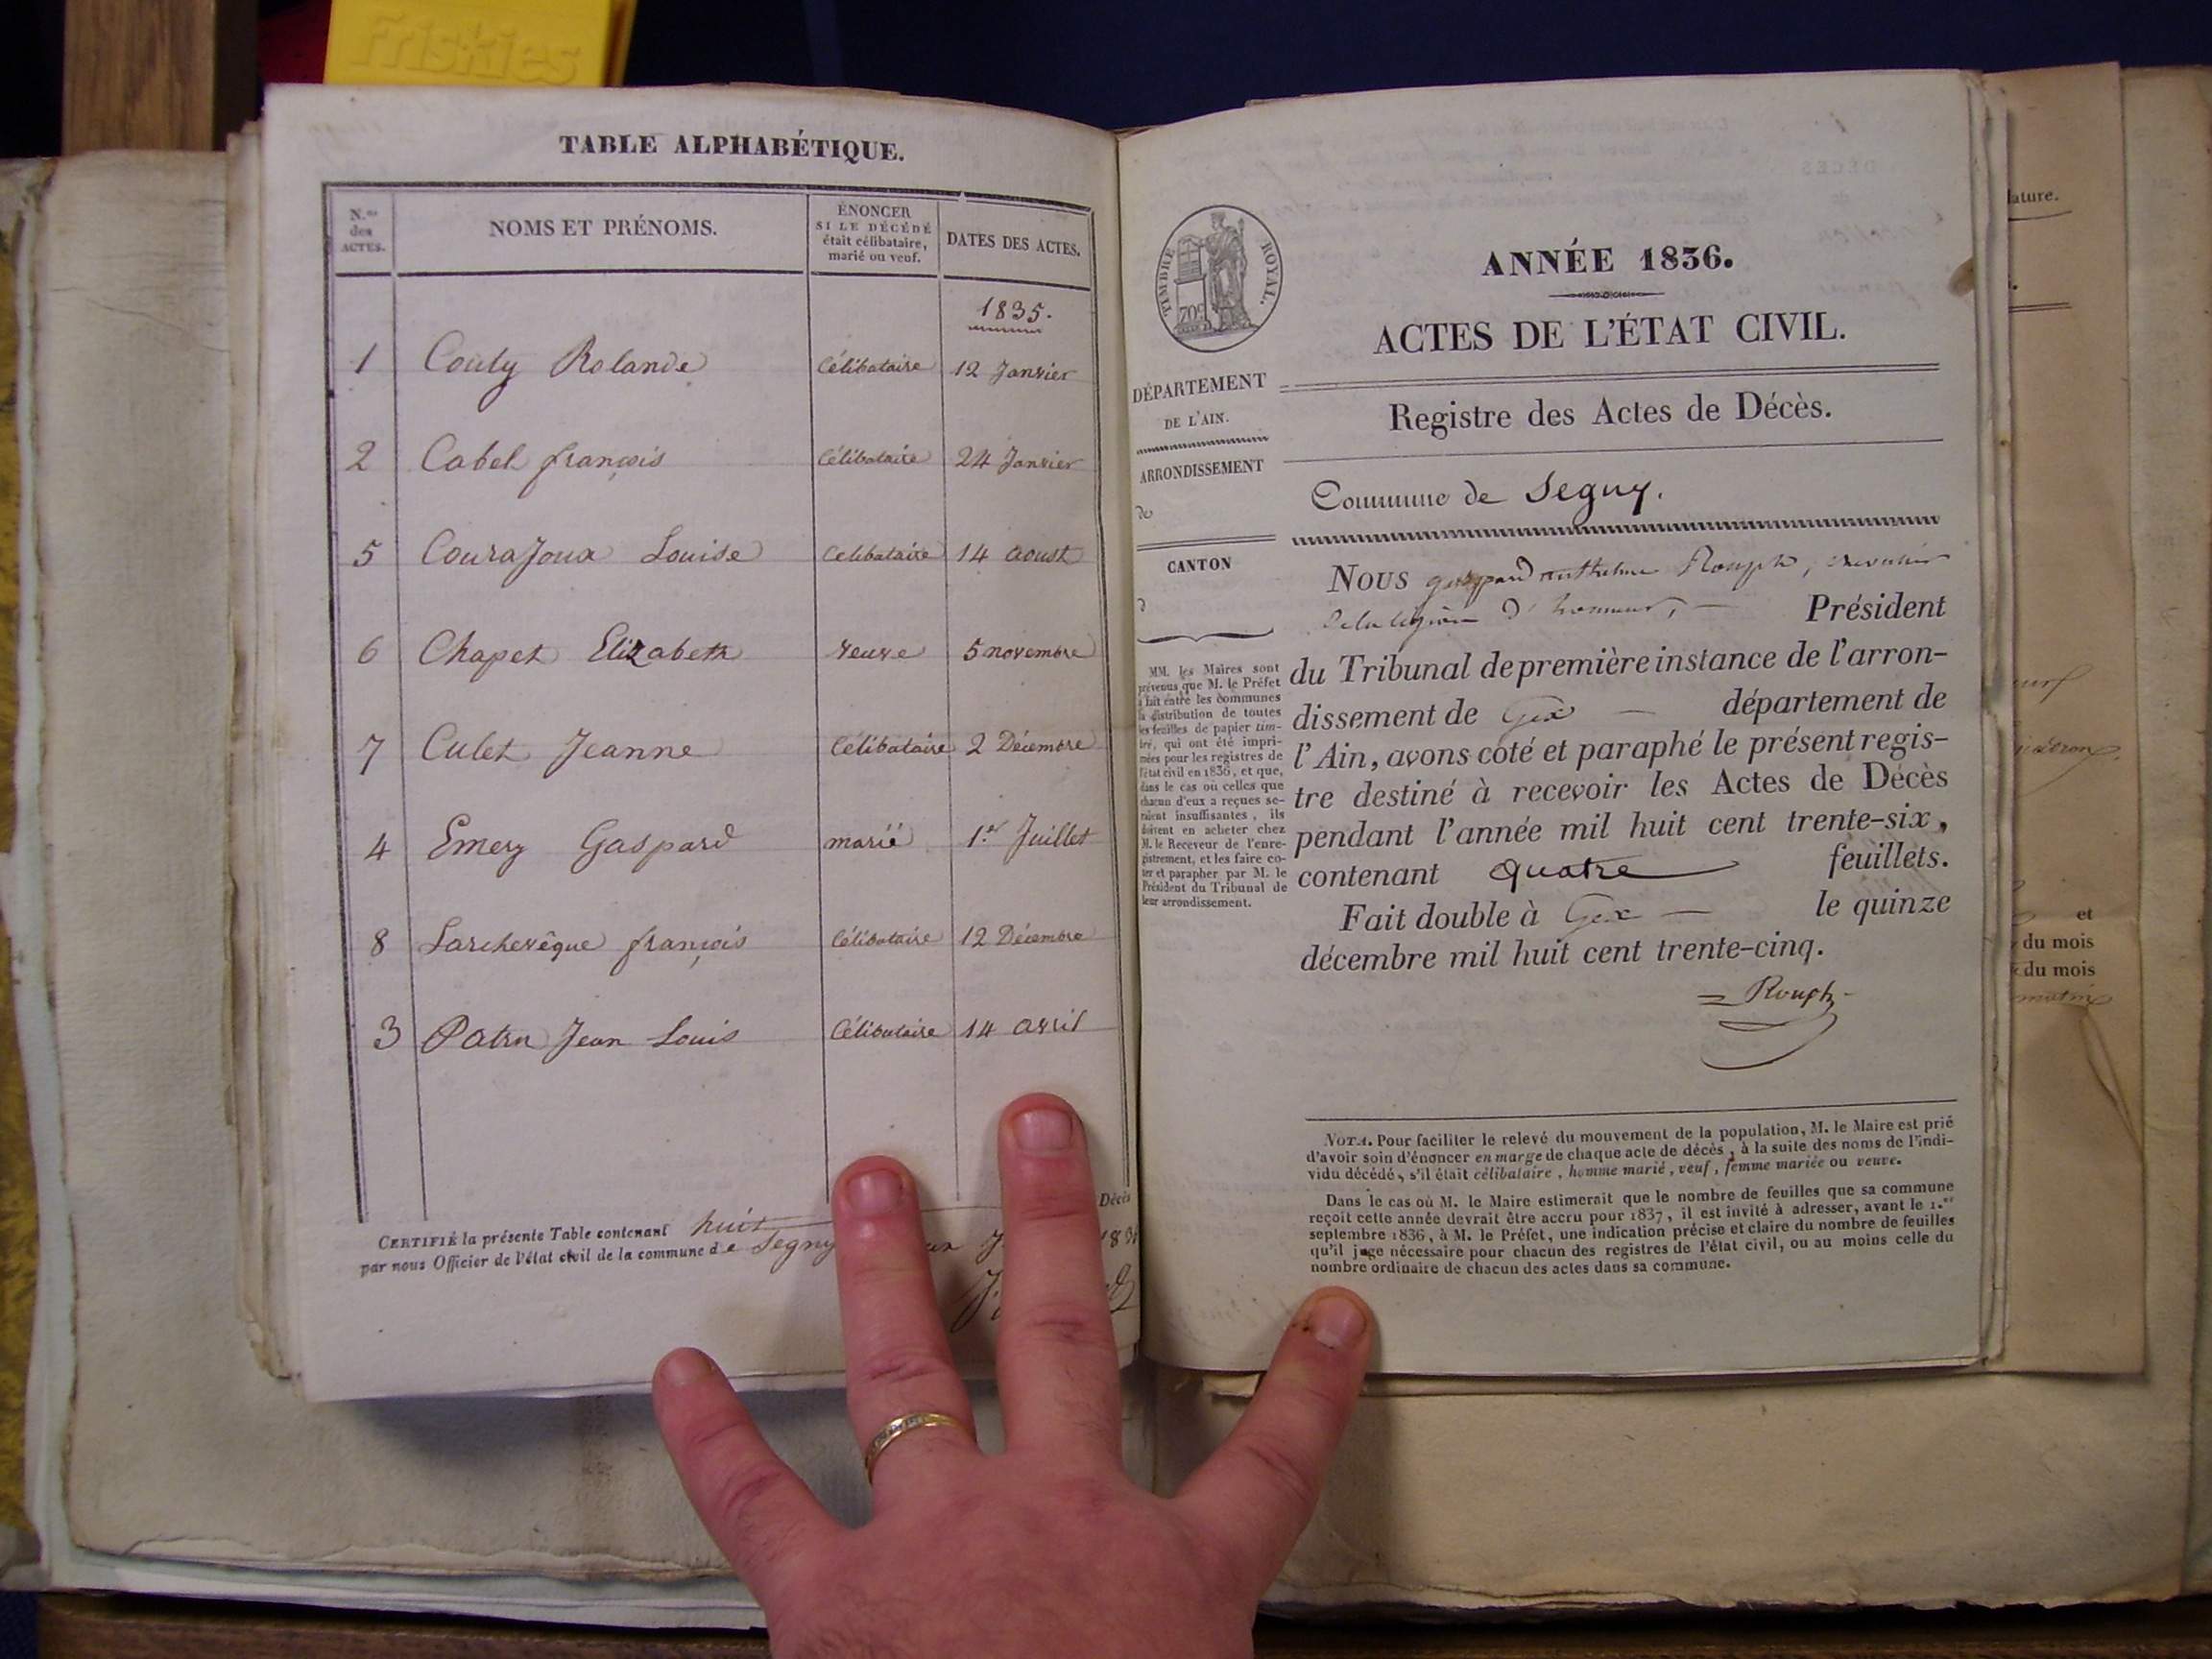 Friskies
TABLE ALPHABÉTIQUE.
N.os des ACTES.
NOMS ET PRÉNOMS.
ÉNONCER SI LE DÉCÉDÉ était célibataire, marié ou veuf.
DATES DES ACTES.
1835.
1 Couty Rolande Célibataire 12 Janvier
2 Cabel françois Célibataire 24 Janvier
5 CouraJoux Louise Celibataire 14 aoust
6 Chapet Elizabeth veuve 5 novembre
7 Culet Jeanne Célibataire 2 Décembre
4 Emery Gaspard marié 1.er Juillet
8 Larchevêque françois Célibataire 12 Décembre
3 Patru Jean Louis Célibataire 14 avril
CERTIFIÉ la présente Table contenant huit Décès
par nous Officier de l'état civil de la commune de Segny
TIMBRE ROYAL.
70c
DÉPARTEMENT
DE L'AIN.
ARRONDISSEMENT
de
CANTON
d
MM. les Maires sont
prévenus que M. le Préfet
a fait entre les communes
la distribution de toutes
les feuilles de papier tim-
bré, qui ont été impri-
mées pour les registres de
l'état civil en 1836, et que,
dans le cas où celles que
chacun d'eux a reçues se-
raient insuffisantes, ils
doivent en acheter chez
M. le Receveur de l'enre-
gistrement, et les faire co-
ter et parapher par M. le
Président du Tribunal de
leur arrondissement.
ANNÉE 1836.
ACTES DE L'ÉTAT CIVIL.
Registre des Actes de Décès.
Commune de Segny.
NOUS gaspard anthelme Rouph, chevalier
de la légion d'honneur, — Président
du Tribunal de première instance de l'arron-
dissement de Gex — département de
l'Ain, avons coté et paraphé le présent regis-
tre destiné à recevoir les Actes de Décès
pendant l'année mil huit cent trente-six,
contenant quatre feuillets.
Fait double à Gex — le quinze
décembre mil huit cent trente-cinq.
Rouph
NOTA. Pour faciliter le relevé du mouvement de la population, M. le Maire est prié
d'avoir soin d'énoncer en marge de chaque acte de décès, à la suite des noms de l'indi-
vidu décédé, s'il était célibataire, homme marié, veuf, femme mariée ou veuve.
Dans le cas où M. le Maire estimerait que le nombre de feuilles que sa commune
reçoit cette année devrait être accru pour 1837, il est invité à adresser, avant le 1.er
septembre 1836, à M. le Préfet, une indication précise et claire du nombre de feuilles
qu'il juge nécessaire pour chacun des registres de l'état civil, ou au moins celle du
nombre ordinaire de chacun des actes dans sa commune.
et
du mois
du mois